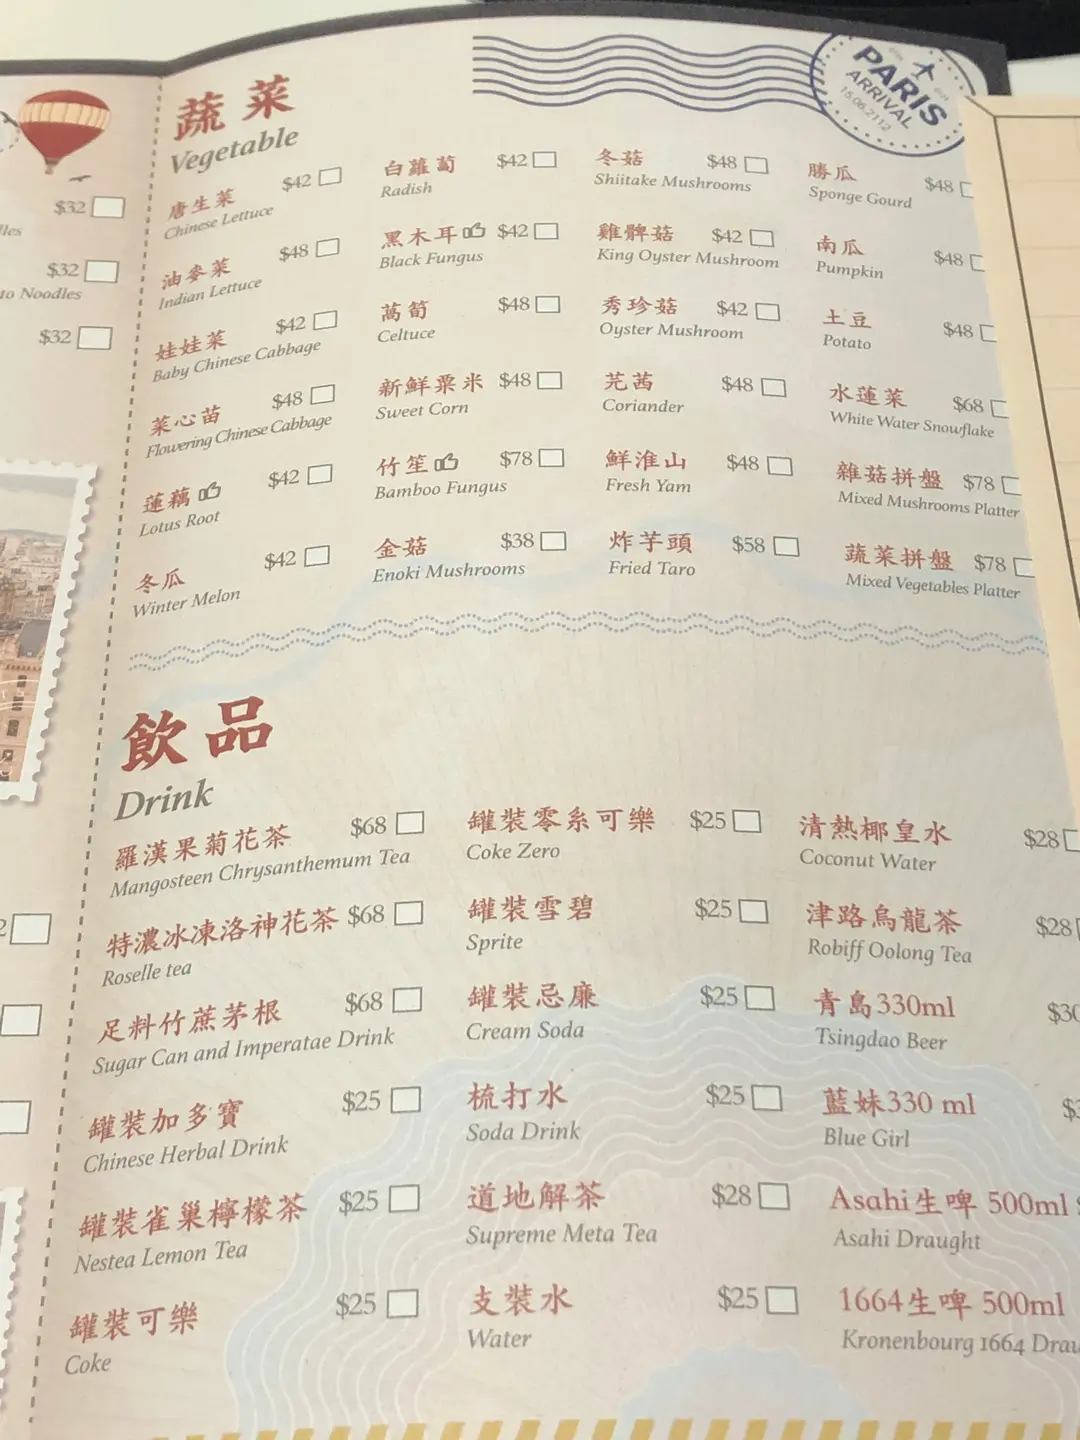 PARIS
ARRIVAL
15.06.2112
$32
$32
to Noodles
$32
蔬菜
Vegetable
唐生菜 $42
Chinese Lettuce
油麥菜 $48
Indian Lettuce
娃娃菜 $42
Baby Chinese Cabbage
菜心苗 $48
Flowering Chinese Cabbage
蓮藕 $42
Lotus Root
冬瓜 $42
Winter Melon
白蘿蔔 $42
Radish
黑木耳 $42
Black Fungus
萵筍 $48
Celtuce
新鮮粟米 $48
Sweet Corn
竹笙 $78
Bamboo Fungus
金菇 $38
Enoki Mushrooms
冬菇 $48
Shiitake Mushrooms
雞髀菇 $42
King Oyster Mushroom
秀珍菇 $42
Oyster Mushroom
芫茜 $48
Coriander
鮮淮山 $48
Fresh Yam
炸芋頭 $58
Fried Taro
勝瓜 $48
Sponge Gourd
南瓜 $48
Pumpkin
土豆 $48
Potato
水蓮菜 $68
White Water Snowflake
雜菇拼盤 $78
Mixed Mushrooms Platter
蔬菜拼盤 $78
Mixed Vegetables Platter
飲品
Drink
羅漢果菊花茶 $68
Mangosteen Chrysanthemum Tea
特濃冰凍洛神花茶 $68
Roselle tea
足料竹蔗茅根 $68
Sugar Can and Imperatae Drink
罐裝加多寶 $25
Chinese Herbal Drink
罐裝雀巢檸檬茶 $25
Nestea Lemon Tea
罐裝可樂 $25
Coke
罐裝零系可樂 $25
Coke Zero
罐裝雪碧 $25
Sprite
罐裝忌廉 $25
Cream Soda
梳打水 $25
Soda Drink
道地解茶 $28
Supreme Meta Tea
支裝水 $25
Water
清熱椰皇水 $28
Coconut Water
津路烏龍茶 $28
Robiff Oolong Tea
青島330ml $30
Tsingdao Beer
藍妹330 ml
Blue Girl
Asahi生啤 500ml
Asahi Draught
1664生啤 500ml
Kronenbourg 1664 Drau